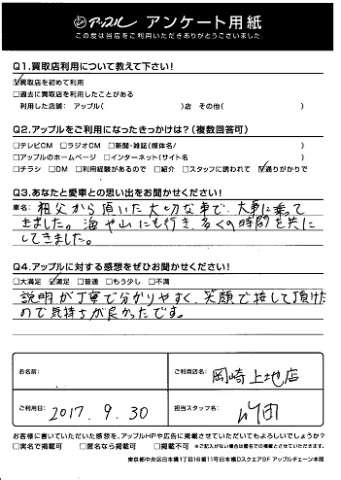 アップル アンケート用紙
この度は当店をご利用いただきありがとうございました。
Q1.買取店利用について教えて下さい!
☑買取店を初めて利用
□過去に買取店を利用したことがある
利用した店舗: アップル( )店 その他( )
Q2.アップルをご利用になったきっかけは?(複数回答可)
□テレビCM □ラジオCM □新聞・雑誌(媒体名/ )
□アップルのホームページ □インターネット(サイト名 )
□チラシ □DM □利用経験があるので □紹介 □スタッフに誘われて ☑通りがかりで
Q3.あなたと愛車との思い出をお聞かせください!
車名: 祖父から頂いた大切な車で、大事に乗って
きました。海や山にも行き、多くの時間を共に
してきました。
Q4.アップルに対する感想をぜひお聞かせください!
□大満足 ☑満足 □普通 □もう少し □不満
説明が丁寧で分かりやすく、笑顔で接して頂けた
ので気持ちが良かったです。
お名前: ご利用店名: 岡崎上地店
ご利用日: 2017. 9. 30 担当スタッフ名:
お客様に書いていただいた感想を、アップルHPや広告に掲載させていただいてもよろしいでしょうか?
□実名で掲載可 □匿名なら掲載可 □掲載不可 ※ご記入がない場合は匿名での掲載とさせていただきます。
東京都中央区日本橋1丁目16番11号日本橋Dスクエア9F アップルチェーン本部